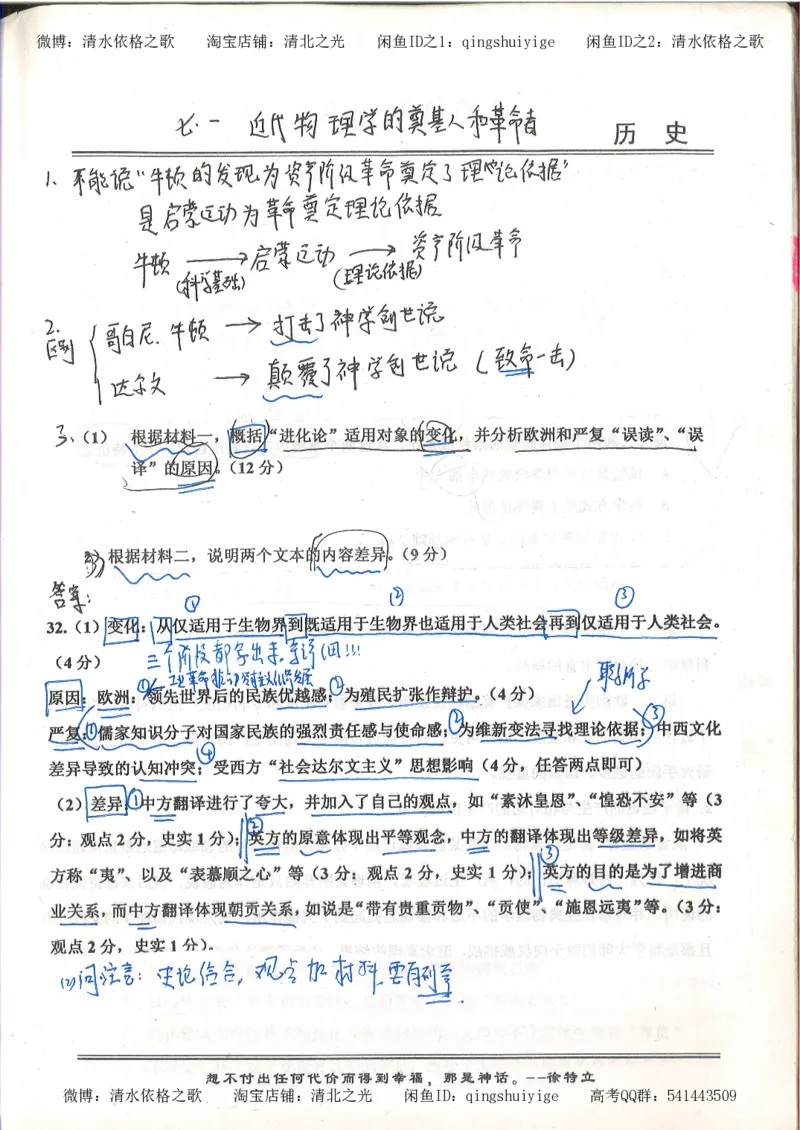 微博：清水依格之歌 淘宝店铺：清北之光 闲鱼ID之1：qingshuiyige 闲鱼ID之2：清水依格之歌
七.一 近代物理学的奠基人和革命者 历 史
1、不能说“牛顿的发现为资产阶级革命奠定了理论依据”
是启蒙运动为革命奠定理论依据
牛顿 → 启蒙运动 → 资产阶级革命
(科学基础) (理论依据)
2.
区别 哥白尼、牛顿 → 打击了神学创世说
达尔文 → 颠覆了神学创世说 (致命一击)
3、(1) 根据材料一，概括“进化论”适用对象的变化，并分析欧洲和严复“误读”、“误
译”的原因。(12 分)
根据材料二，说明两个文本的内容差异。(9 分)
答案：
① ② ③
32.(1) 变化：从仅适用于生物界到既适用于生物界也适用于人类社会再到仅适用于人类社会。
(4 分) 三个阶段都写出来,
原因：欧洲：领先世界后的民族优越感；①为殖民扩张作辩护。(4 分)
严复：①儒家知识分子对国家民族的强烈责任感与使命感；②为维新变法寻找理论依据；③中西文化
差异导致的认知冲突；④受西方“社会达尔文主义”思想影响（4 分，任答两点即可）
(2) 差异：①中方翻译进行了夸大，并加入了自己的观点，如“素沐皇恩”、“惶恐不安”等（3
分：观点 2 分，史实 1 分）；②英方的原意体现出平等观念，中方的翻译体现出等级差异，如将英
方称“夷”、以及“表慕顺之心”等（3 分：观点 2 分，史实 1 分）；③英方的目的是为了增进商
业关系，而中方翻译体现朝贡关系，如说是“带有贵重贡物”、“贡使”、“施恩远夷”等。（3 分：
观点 2 分，史实 1 分）。
(2)问注意：史论结合，观点加材料要有列举.
想不付出任何代价而得到幸福，那是神话。--徐特立
微博：清水依格之歌 淘宝店铺：清北之光 闲鱼ID：qingshuiyige 高考QQ群：541443509